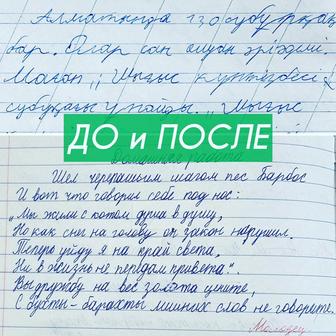 Алматында 130 субұрқақ
бар. Олар сан алуан
Маған „ Шығыс күнтізбесі
ұнайды. „ Шығыс
ДО и ПОСЛЕ
Домашняя работа
Шел черепашьим шагом пес Барбос
И вот что говорил себе под нос:
„Мы жили с котом душа в душу,
Но как снег на голову он закон нарушил.
Теперь уйду я на край света,
Ни в жизнь не передам привета".
Вы дружбу на вес золота цените,
С бухты-барахты лишних слов не говорите
Молодец